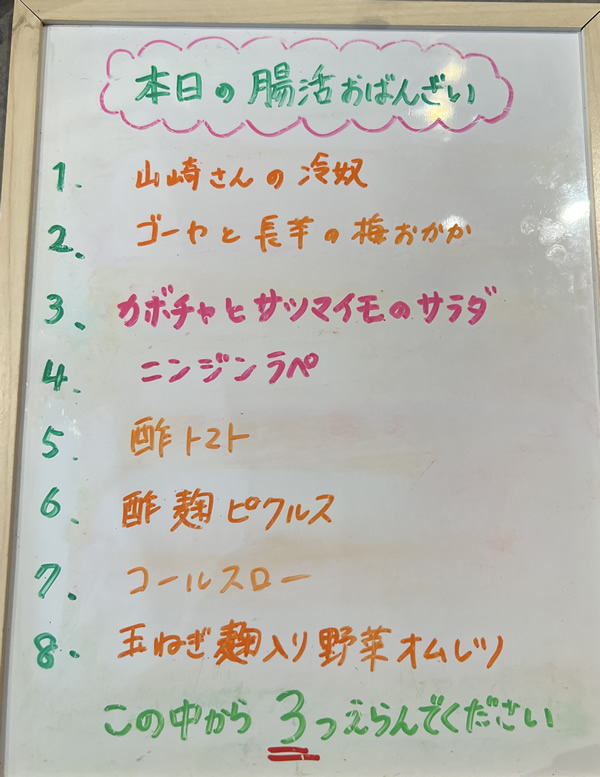 本日の腸活おばんざい
1. 山崎さんの冷奴
2. ゴーヤと長芋の梅おかか
3. カボチャとサツマイモのサラダ
4. ニンジンラペ
5. 酢トマト
6. 酢麹ピクルス
7. コールスロー
8. 玉ねぎ麹入り野菜オムレツ
この中から3つえらんでください